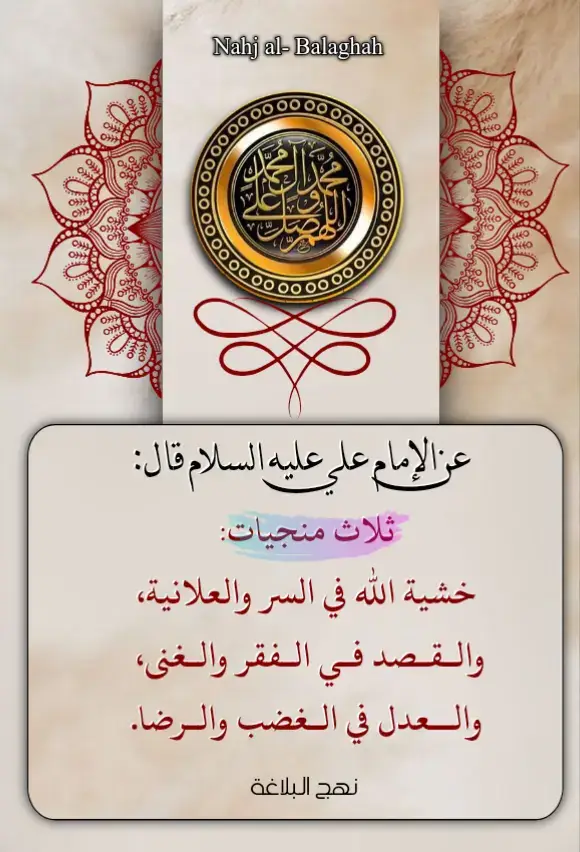 Nahj al- Balaghah
اللهم صل على محمد وآل محمد
عن الإمام علي عليه السلام قال:
ثلاث منجيات:
خشية الله في السر والعلانية،
والـقـصد فـي الـفقر والـغنى،
والـعدل في الـغضب والـرضا.
نهج البلاغة